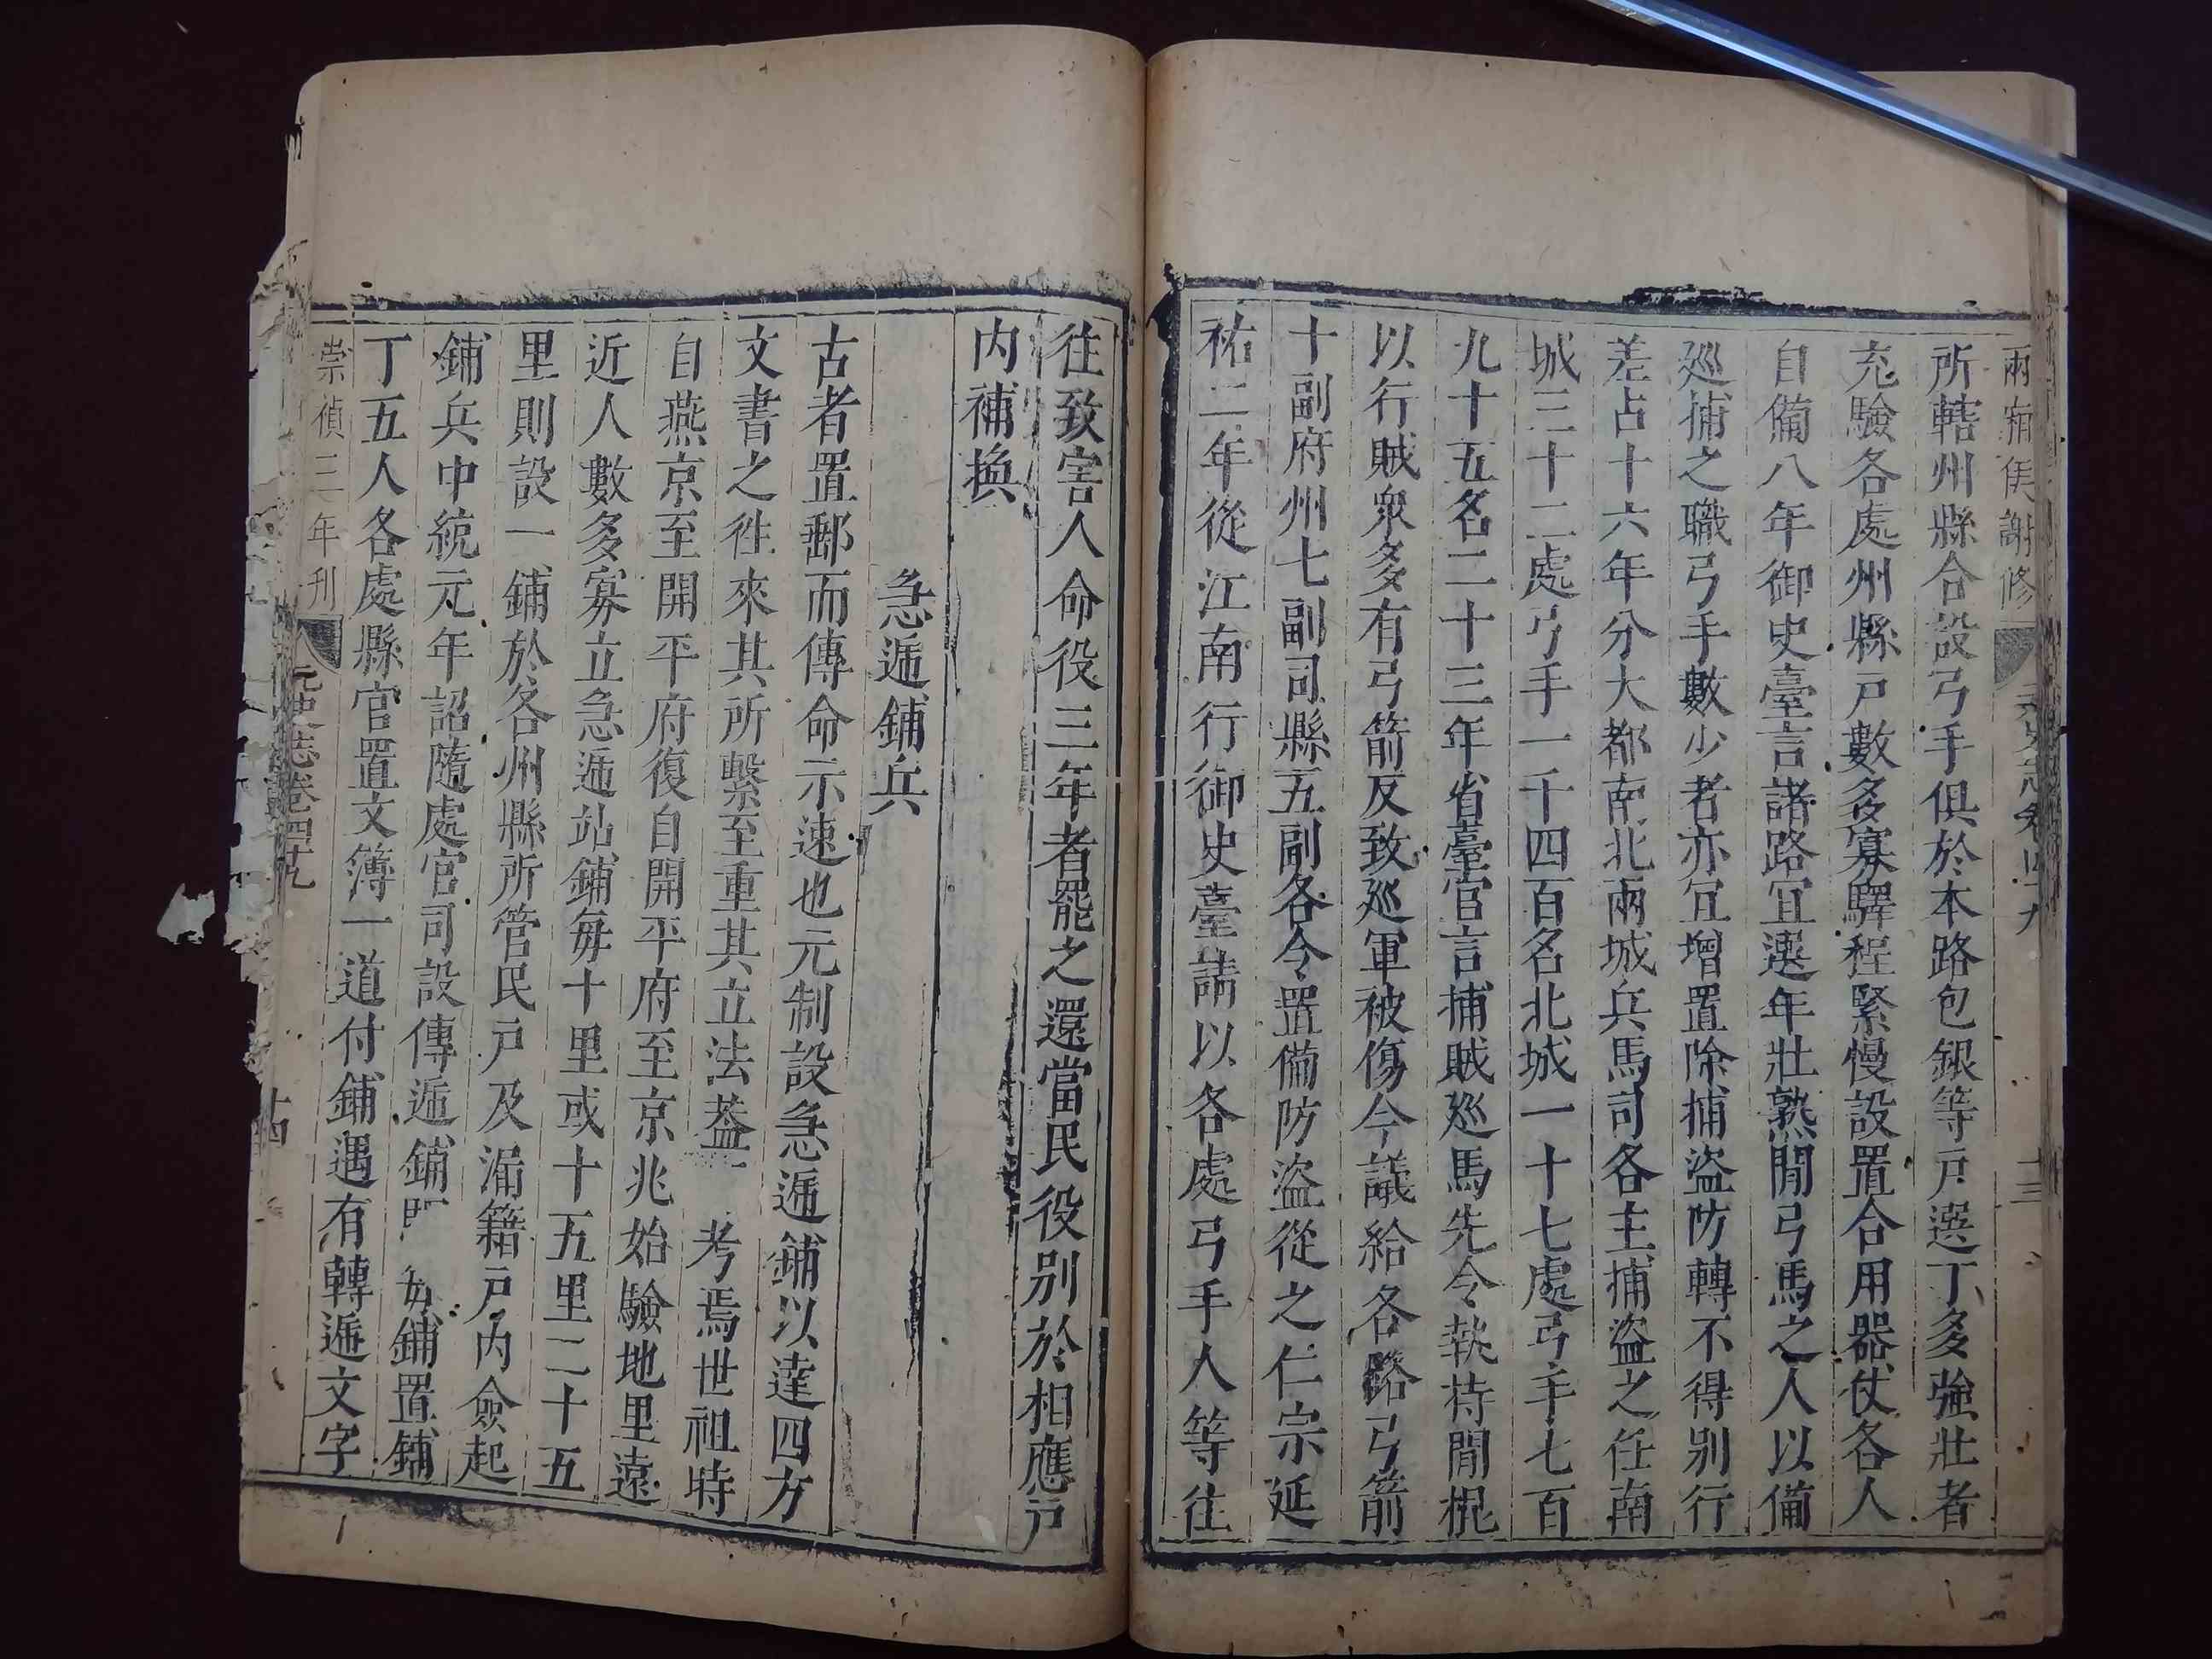 所轄州縣合設弓手俱於本路包銀等戸選丁多強壯者
充驗各處州縣戸數多寡驛程緊慢設置合用器仗各人
自備八年御史臺言諸路宜選年壯熟閑弓馬之人以備
巡捕之職弓手數少者亦宜增置除捕盜防轉不得别行
差占十六年分大都南北兩城兵馬司各主捕盜之任南
城三十二處弓手一千四百名北城一十七處弓手七百
九十五名二十三年省臺官言捕賊巡馬先令執持悶棍
以行賊衆多有弓箭反致巡軍被傷今議給各路弓箭
十副府州七副司縣五副各令置備防盜從之仁宗延
祐二年從江南行御史臺請以各處弓手人等往
往致害人命役三年者罷之還當民役别於相應戸
内補換
急遞鋪兵
古者置郵而傳命示速也元制設急遞鋪以達四方
文書之徃來其所繫至重其立法葢 考焉世祖時
自燕京至開平府復自開平府至京兆始驗地里遠
近人數多寡立急遞站鋪每十里或十五里二十五
里則設一鋪於各州縣所管民戸及漏籍戸内僉起
鋪兵中統元年詔隨處官司設傳遞鋪 每鋪置鋪
丁五人各處縣官置文簿一道付鋪遇有轉遞文字
崇禎三年刊
元史志卷四十九
十四